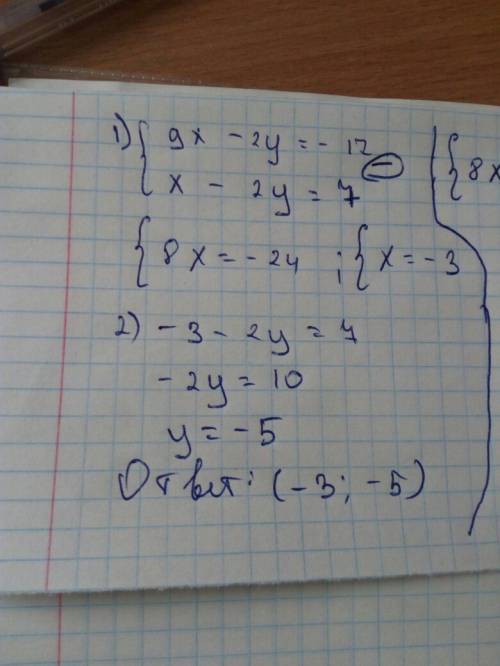 1) { 9x - 2y = - 17
{ x - 2y = 7 (-)
{ 8x
{ 8x = - 24 ; { x = - 3
2) - 3 - 2y = 7
- 2y = 10
y = - 5
Ответ: (- 3; - 5)